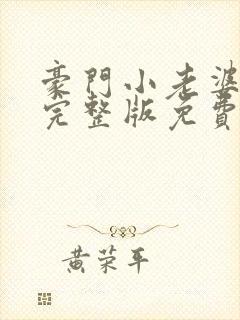 豪門小老婆
完整版免費
黄荣平